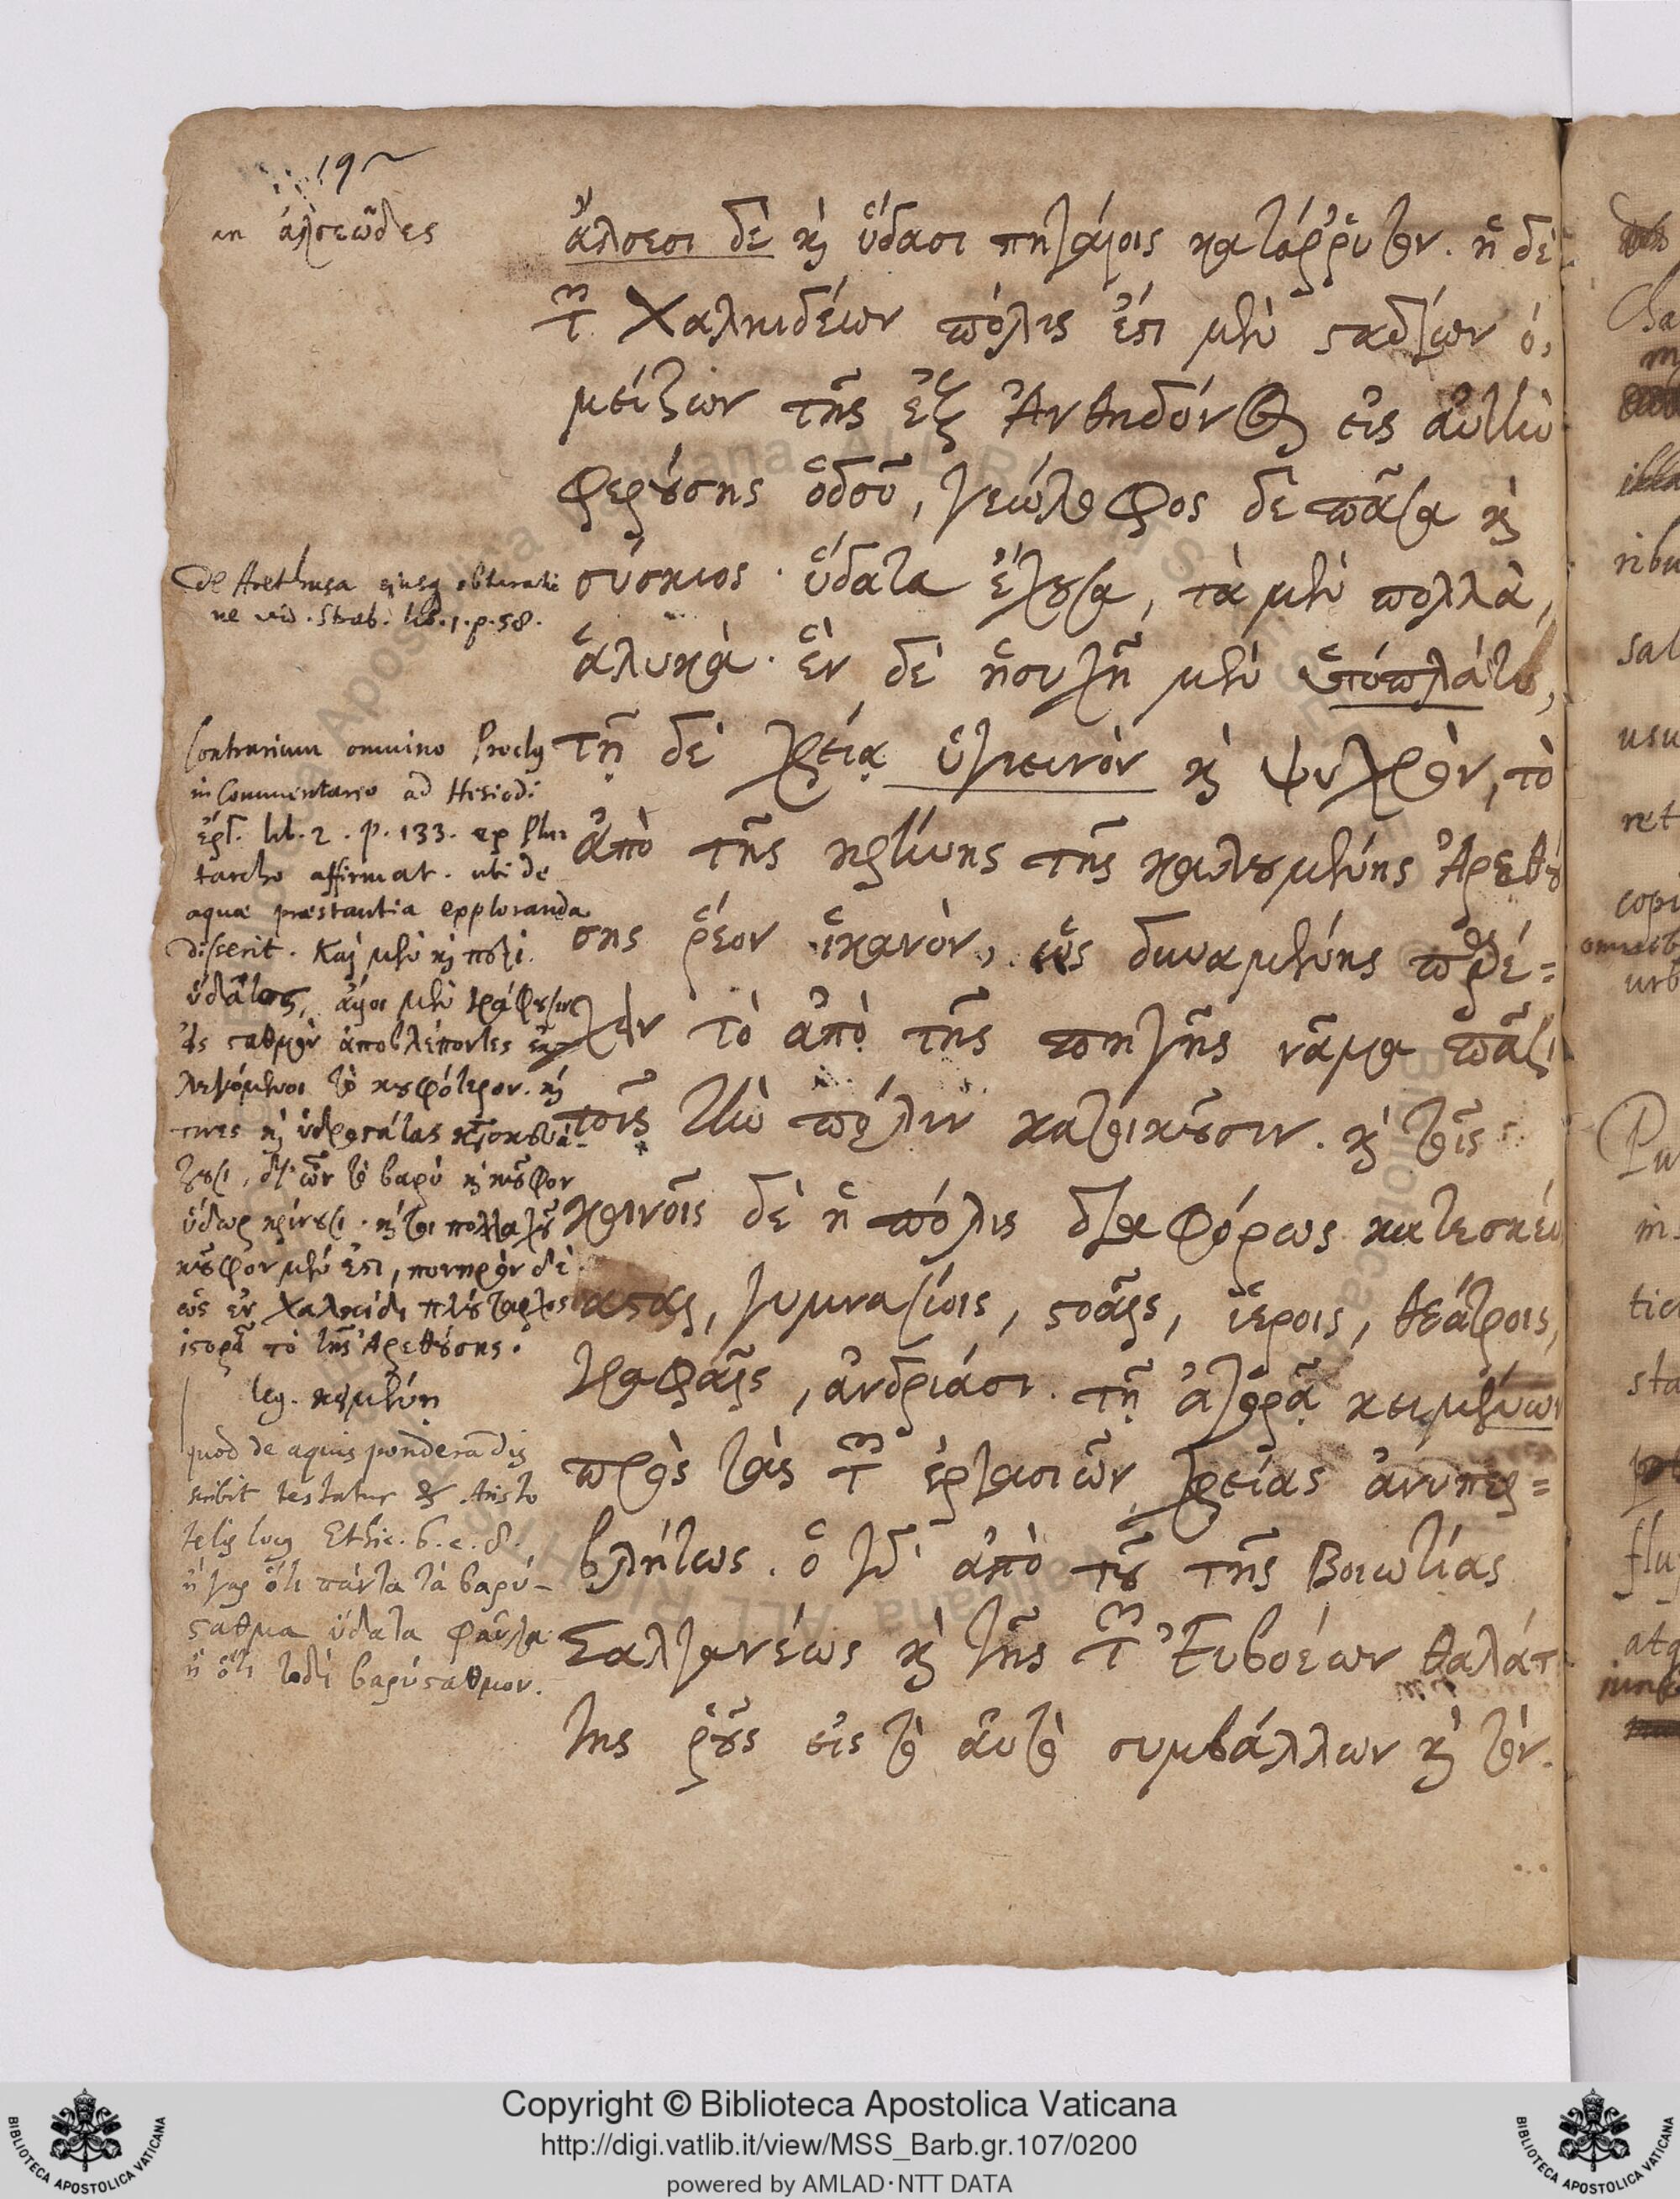 19
an ἀλσεῶδες
ἄλσεσι δὲ κὶ ὕδασι πηγαίοις κατάῤῥυτον. ἡ δὲ
τῶν Χαλκιδέων πόλις ἐστὶ μὲν σταδίων ό,
μείζων τῆς ἐξ Ἀνθηδόνος εἰς αὐτὴν
φερούσης ὁδοῦ, γεώλοφος δὲ πᾶσα κὶ
σύσκιος. ὕδατα ἔχουσα, τὰ μὲν πολλὰ,
ἁλυκὰ. ἓν δὲ ἡσυχῆ μὲν ὑπόπλατυ,
τῇ δὲ χρείᾳ ὑγιεινὸν κὶ ψυχρὸν, τὸ
ἀπὸ τῆς κρήνης τῆς καλουμένης Ἀρεθού
σης ῥέον ἱκανὸν, ὡς δυναμένης παρέ=
χειν τὸ ἀπὸ τῆς πηγῆς νᾶμα πᾶσι
τοῖς τὴν πόλιν κατοικοῦσιν. κὶ τοῖς
κοινοῖς δὲ ἡ πόλις διαφόρως κατεσκεύ
ασται, γυμνασίοις, στοαῖς, ἱεροις, θεάτροις,
γραφαῖς, ἀνδριάσι. τῇ ἀγορᾷ κειμένων
πρὸς τὰς τῶν ἐργασιῶν χρείας ἀνυπερ=
βλήτως. ὁ γὰρ ἀπὸ τοῦ τῆς Βοιωτίας
Σαλγανέως κὶ τῆς τῶν Εὐβοέων θαλάτ
της ῥοῦς εἰς τὸ αὐτὸ συμβάλλων κὶ τὸν.
de Arethusa ejusq obturatio
ne vid. Strab. lib. 1. p. 58.
Contrarium omnino Proclus
in Commentario ad Hesiodi
ἐργ. lib. 2. p. 133. ex Plu=
tarcho affirmat. ubi de
aquae praestantia exploranda
disserit. Καὶ μὲν κὶ περὶ
ὕδατος, ἔνιοι μὲν γράφουσιν
εἰς σταθμὸν ἀποβλέποντες ἐκ
λεγόμενοι τὸ κουφότερον. κὶ
τινες κὶ ὑδροστάτας κατασκευά-
ζουσι, δι' ὧν τὸ βαρὺ κὶ κοῦφον
ὕδωρ κρίνουσι. κἄτοι πολλαχοῦ
κοῦφον μὲν ἐστι, πονηρὸν δὲ
ὡς ἐν Χαλκίδι Πλούταρχος
ἱστορεῖ τὸ τῆς Ἀρεθούσης.
leg. κειμένῃ
quod de aquis ponderandis
scribit testatur & Aristo
telis locus Ethic. 6. c. 8.
ἢ γὰρ ὅτι πάντα τὰ βαρύ-
σταθμα ὕδατα φαῦλα
ἢ ὅτι τοδὶ βαρύσταθμον.
Copyright © Biblioteca Apostolica Vaticana
http://digi.vatlib.it/view/MSS_Barb.gr.107/0200
powered by AMLAD·NTT DATA
BIBLIOTECA APOSTOLICA VATICANA
BIBLIOTECA APOSTOLICA VATICANA